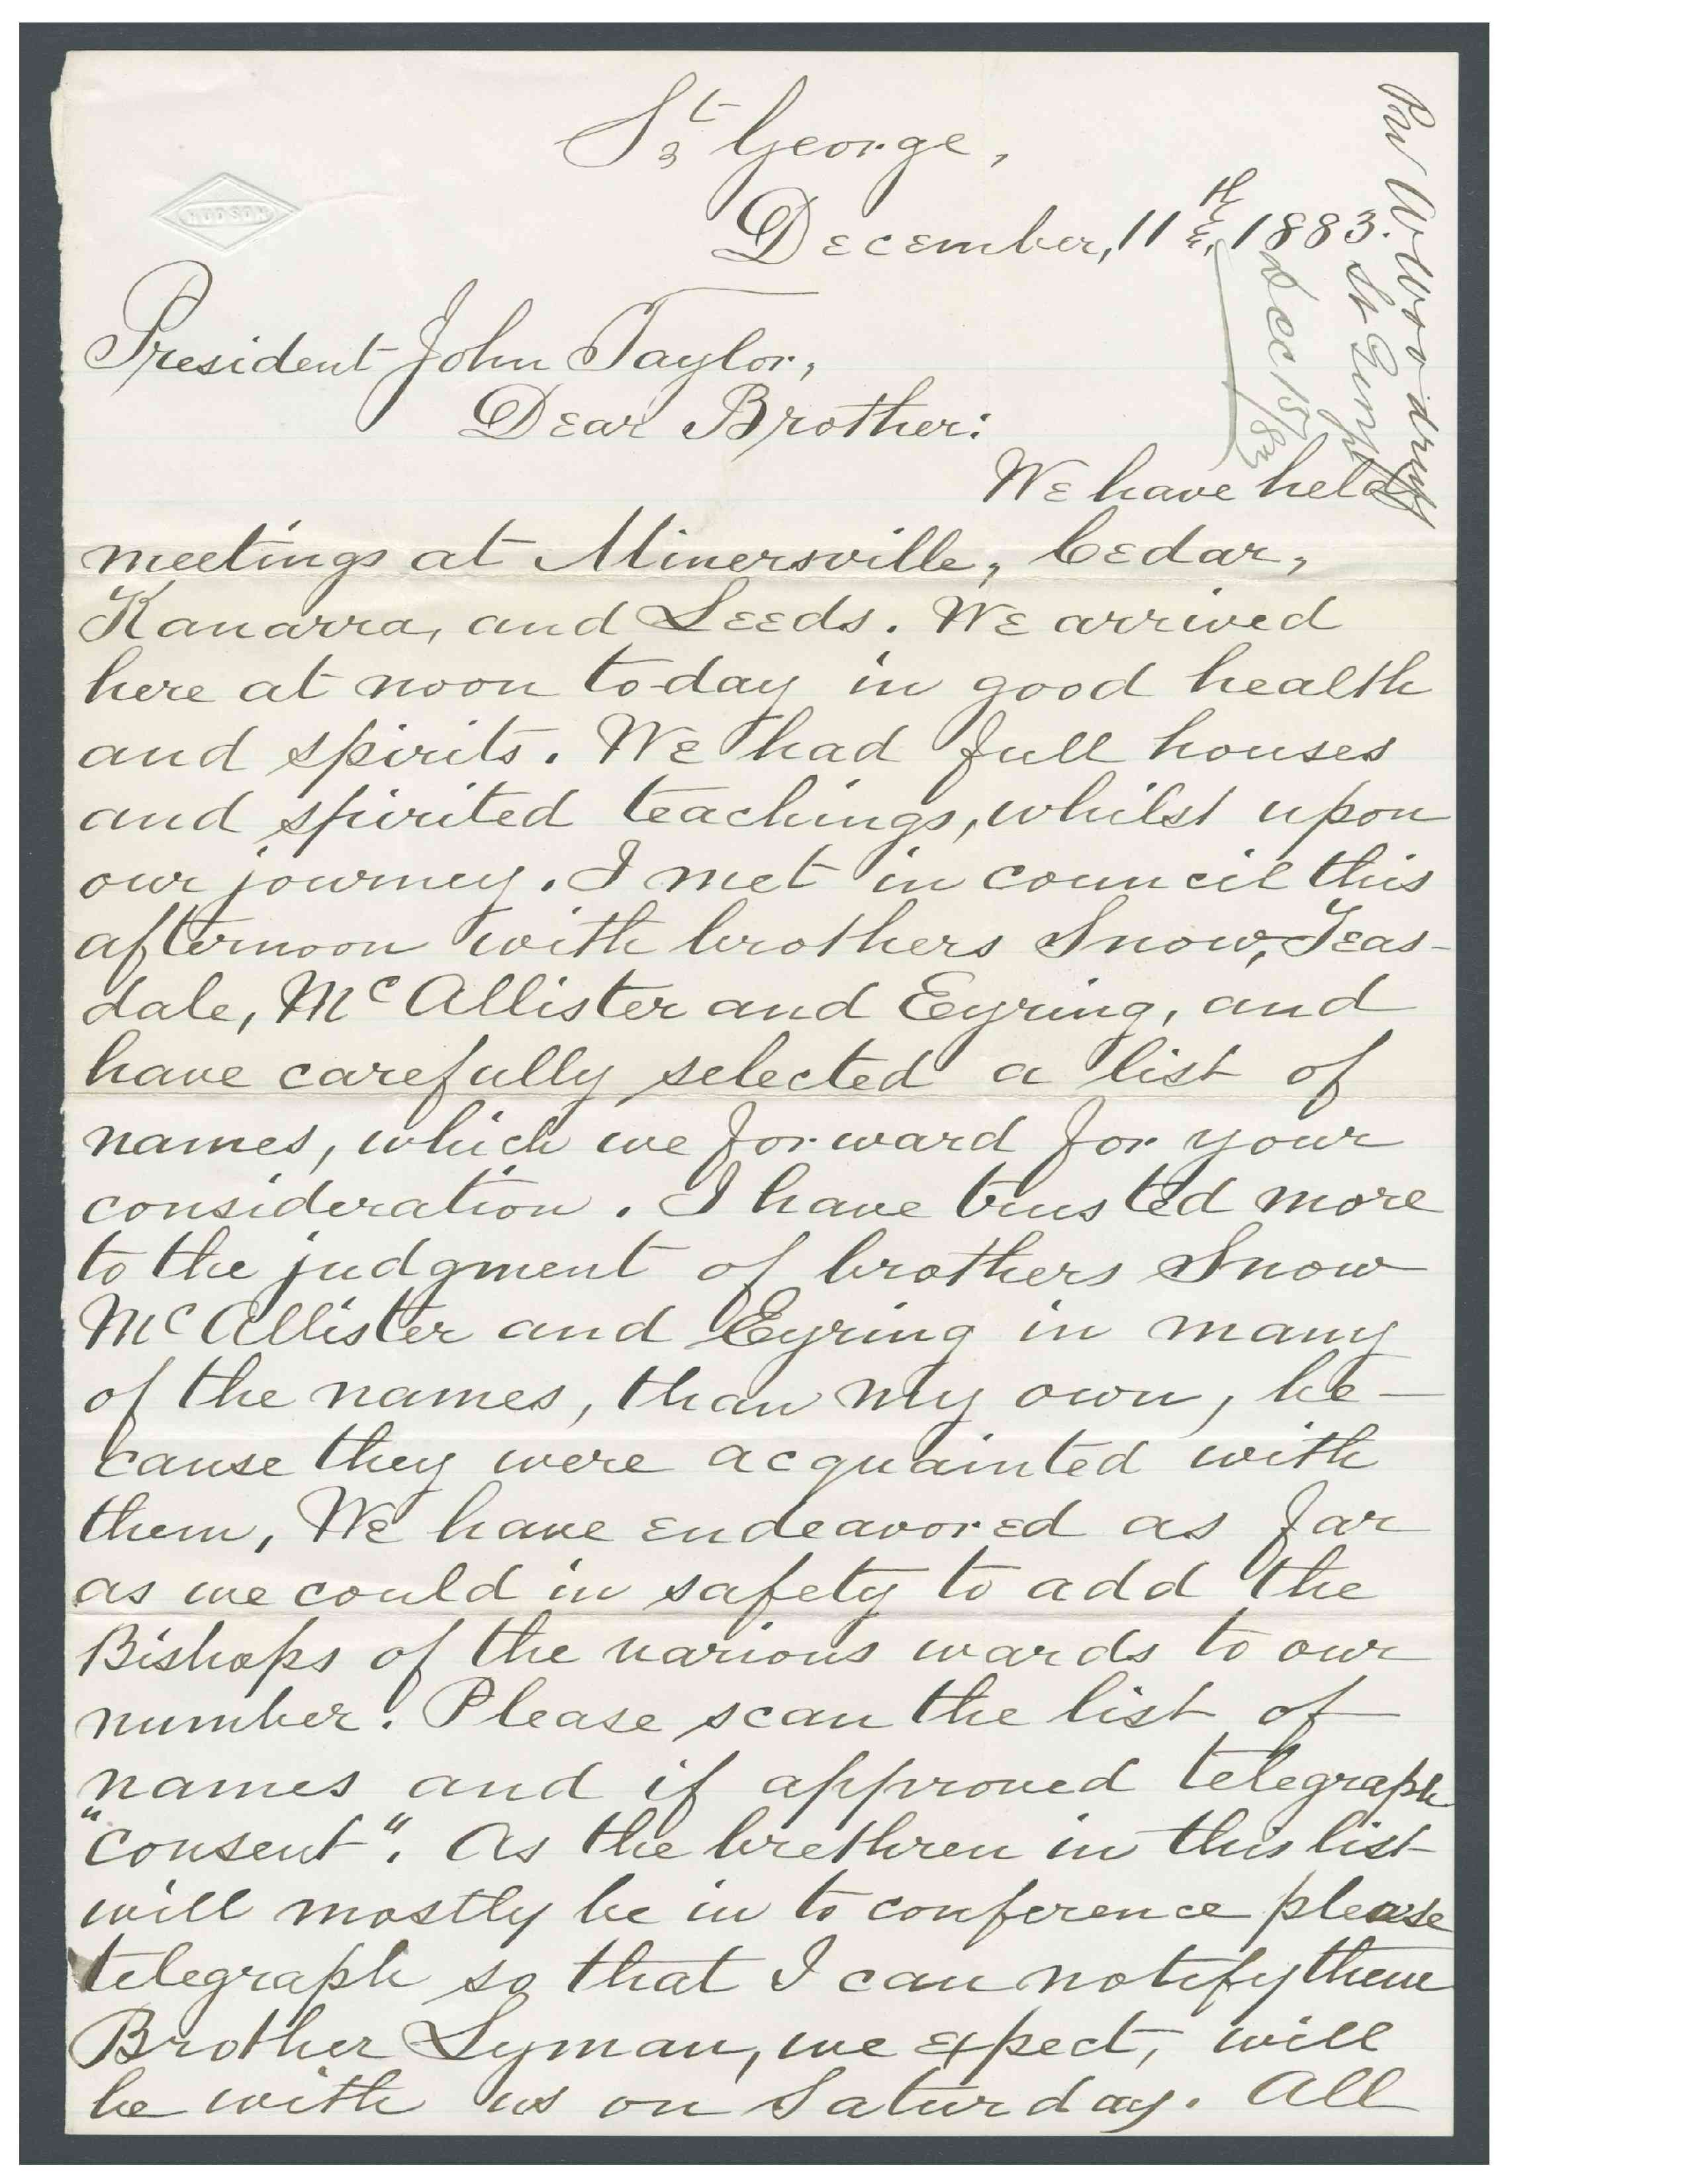 St George,
December, 11th, 1883.
HUDSON
President John Taylor,
Dear Brother:
We have held
meetings at Minersville, Cedar,
Kanarra, and Leeds. We arrived
here at noon to-day in good health
and spirits. We had full houses
and spirited teachings, whilst upon
our journey. I met in council this
afternoon with brothers Snow, Teas-
dale, McAllister and Eyring, and
have carefully selected a list of
names, which we forward for your
consideration. I have trusted more
to the judgment of brothers Snow
McAllister and Eyring in many
of the names, than my own, be-
cause they were acquainted with
them, We have endeavored as far
as we could in safety to add the
Bishops of the various wards to our
number. Please scan the list of
names and if approved telegraph
"consent". As the brethren in this list
will mostly be in to conference please
telegraph so that I can notify them
Brother Lyman, we expect, will
be with us on Saturday. All
W Woodruff
St George
Dec 15/83